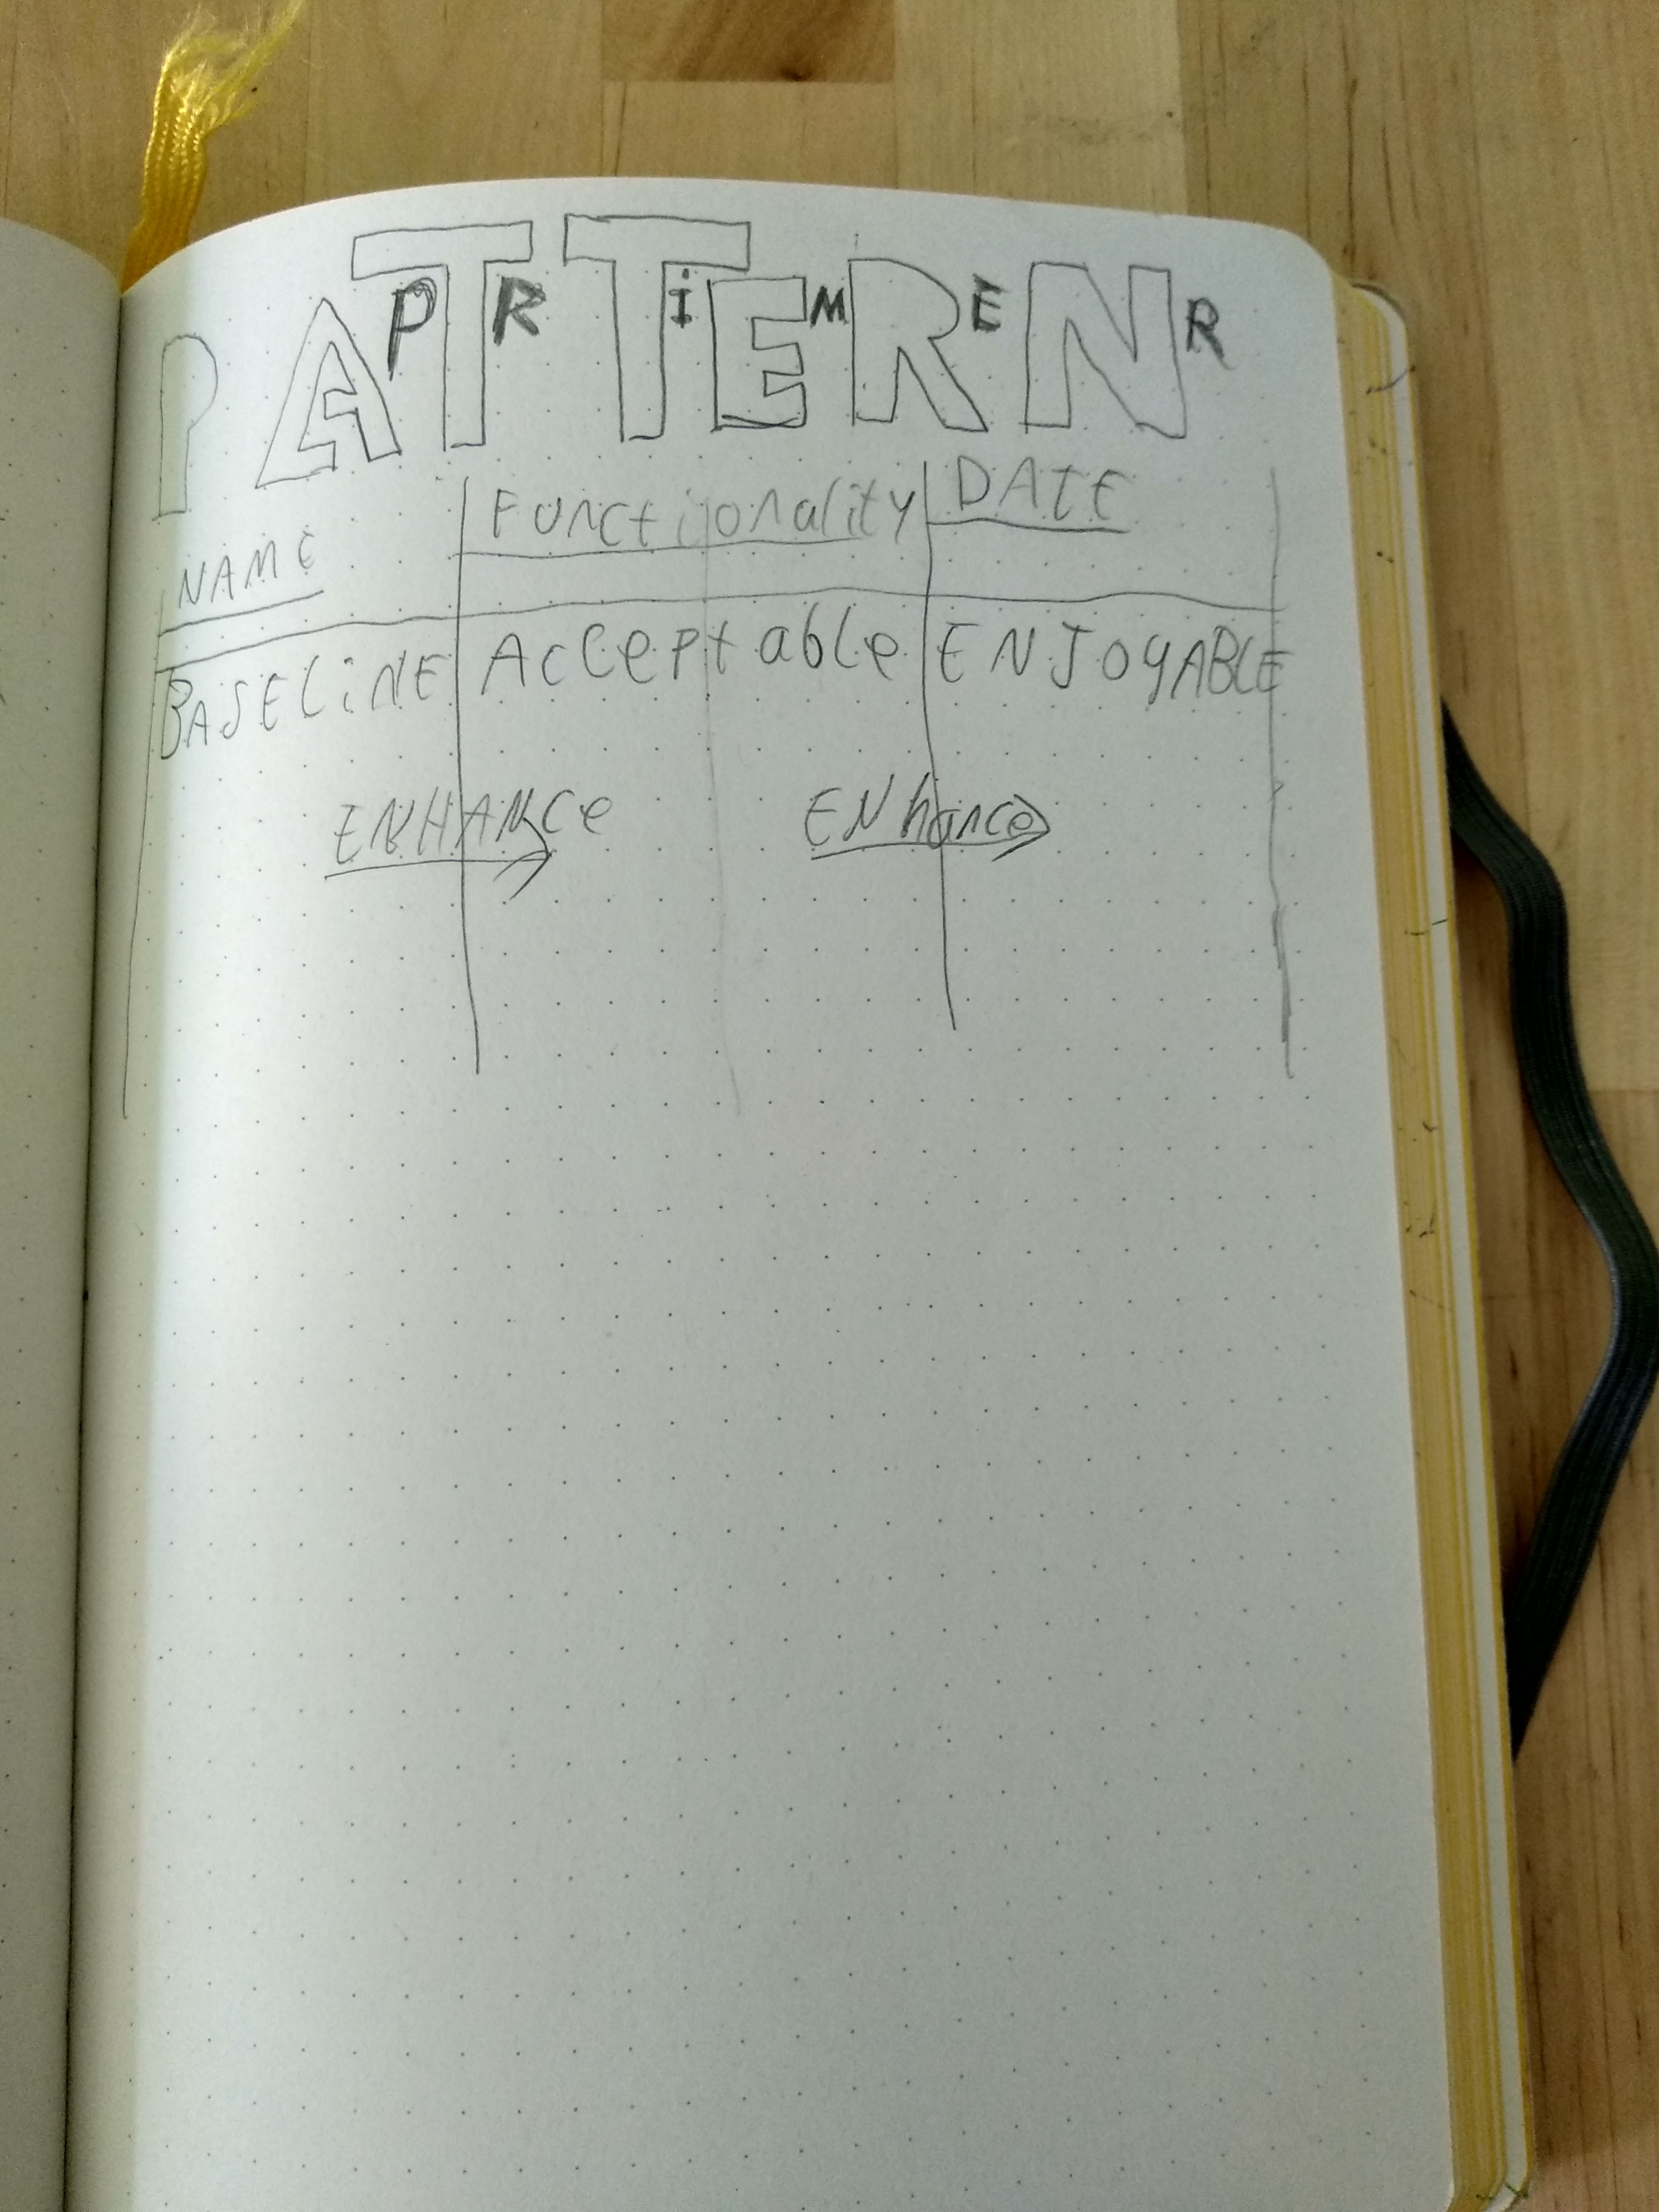 PATTERN
PRiMER
NAME Functionality DATE
BASELiNE Acceptable ENJOYABLE
ENHANce ENhance